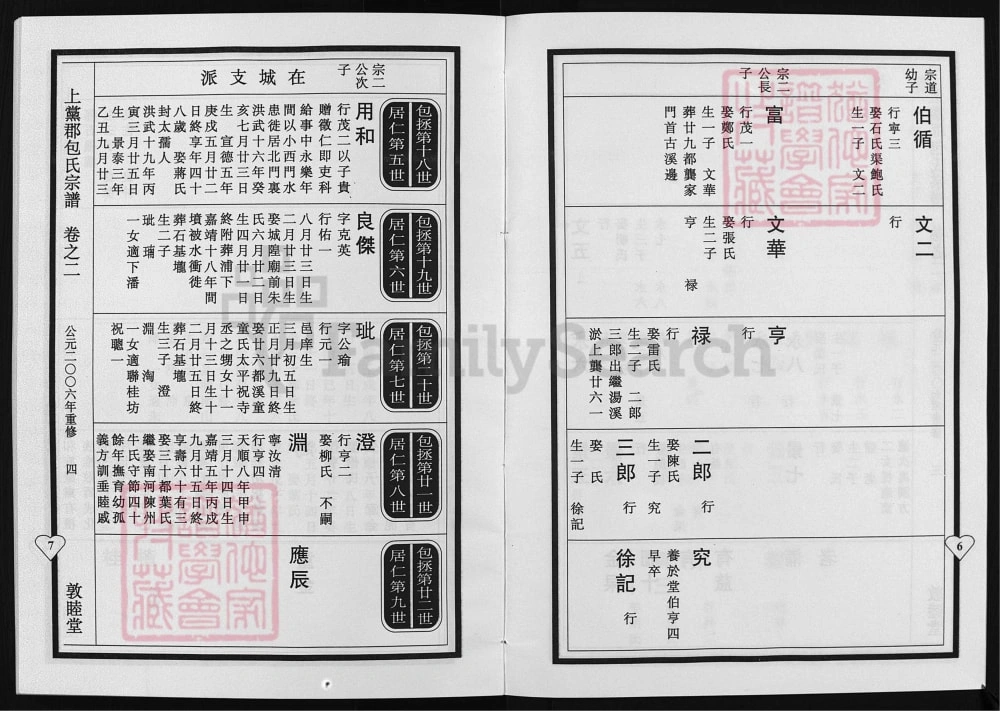 宗道
幼子
伯循
行寧三
娶石氏渠鮑氏
生一子　文二
宗二
公長
子
富
行茂一
娶鄭氏
生一子　文華
葬廿九都龔家
門首古溪邊
文二
行
文華
行
娶張氏
生二子　祿
亨
亨
行
祿
行
娶雷氏
生二子　二郎
三郎出繼湯溪
淤上龔廿六一
二郎
行
娶陳氏
生一子　究
三郎
行
娶　氏
生一子　徐記
究
養於堂伯亨四
早卒
徐記
行
6
包拯第十八世
居仁第五世
包拯第十九世
居仁第六世
包拯第二十世
居仁第七世
包拯第廿一世
居仁第八世
包拯第廿二世
居仁第九世
宗二
公次
子
在城支派
用和
行茂二以子貴
贈徵仁即吏科
給事中永樂年
間以小西門水
患徙居北門裏
洪武十六年癸
亥七月廿三日
生　宣德五年
庚戌五月廿二
日終享年四十
八歲　娶蔣氏
封太孺人
洪武十九年丙
寅三月廿五日
生　景泰三年
乙丑九月廿三
良傑
字克英
行佑一
八月廿三日生
二月廿三日生
娶城隍廟前朱
氏六月廿二日
生四月廿一日
終附葬浦下
嘉靖十八年間
墳被水衝徙
葬石基壠
生二子
玭　瑀
一女適下潘
玭
字公瑜
行元一
邑庠生
三月初五日生
正月廿九日終
娶廿六都溪童
童氏太平祝寺
丞之甥女十一
月十三日生十
二月廿五日終
葬石基壠
生三子　澄
淵　淘
一女適聯桂坊
祝聰一
澄
行亨二
娶柳氏　不嗣
淵
寧汝清
行亨四
天順八年甲申
三月十四日生
嘉靖五年丙戌
九月廿五日終
享壽六十有三
娶三十都葉氏
繼娶南河陳州
牛氏守節四十
餘年撫育幼孤
義方訓垂睦戚
應辰
上黨郡包氏宗譜　卷之二
公元二〇〇六年重修　四
敦睦堂
7
FamilySearch